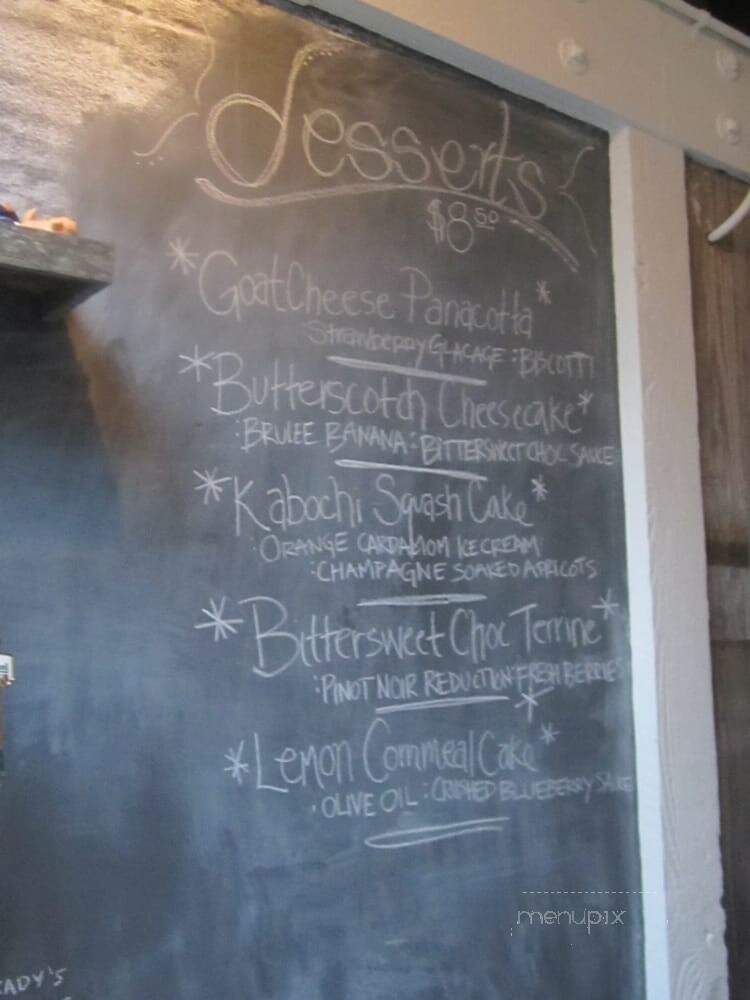 desserts
$8 50
*Goat Cheese Panacotta*
Strawberry GLACAGE : BISCOTTI
*Butterscotch Cheesecake*
:BRULEE BANANA : BITTERSWEET CHOC SAUCE
*Kabochi Squash Cake*
:ORANGE CARDAMOM ICE CREAM
:CHAMPAGNE SOAKED APRICOTS
*Bittersweet Choc Terrine*
:PINOT NOIR REDUCTION FRESH BERRIES
*Lemon Cornmeal Cake*
:OLIVE OIL : CRUSHED BLUEBERRY SAUCE
menupix